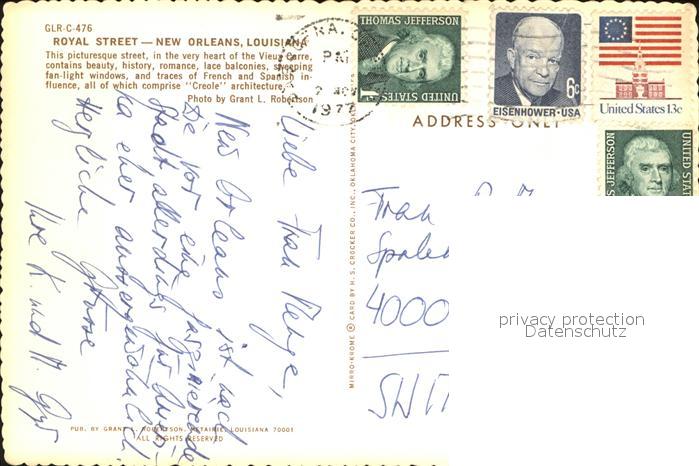 GLR-C-476
ROYAL STREET — NEW ORLEANS, LOUISIANA
This picturesque street, in the very heart of the Vieux Carre,
contains beauty, history, romance, lace balconies, sweeping
fan-light windows, and traces of French and Spanish in-
fluence, all of which comprise "Creole" architecture.
Photo by Grant L. Robertson
PM
NOV
1977
THOMAS JEFFERSON
1¢
UNITED STATES
6c
EISENHOWER·USA
United States 13c
S JEFFERSON
UNITED STA
ADDRESS ONLY
Liebe Frau
New Orleans ist nach
die vor eine faszinierende
Stadt allerdings für
ka eher aussergewöhnlich.
Herzliche Grüsse
Ihre K. und M.
Frau
4000
MIRRO-KROME ® CARD BY H. S. CROCKER CO., INC., OKLAHOMA CITY,
PUB. BY GRANT L. ROBERTSON, METAIRIE, LOUISIANA 70001
ALL RIGHTS RESERVED
privacy protection
Datenschutz